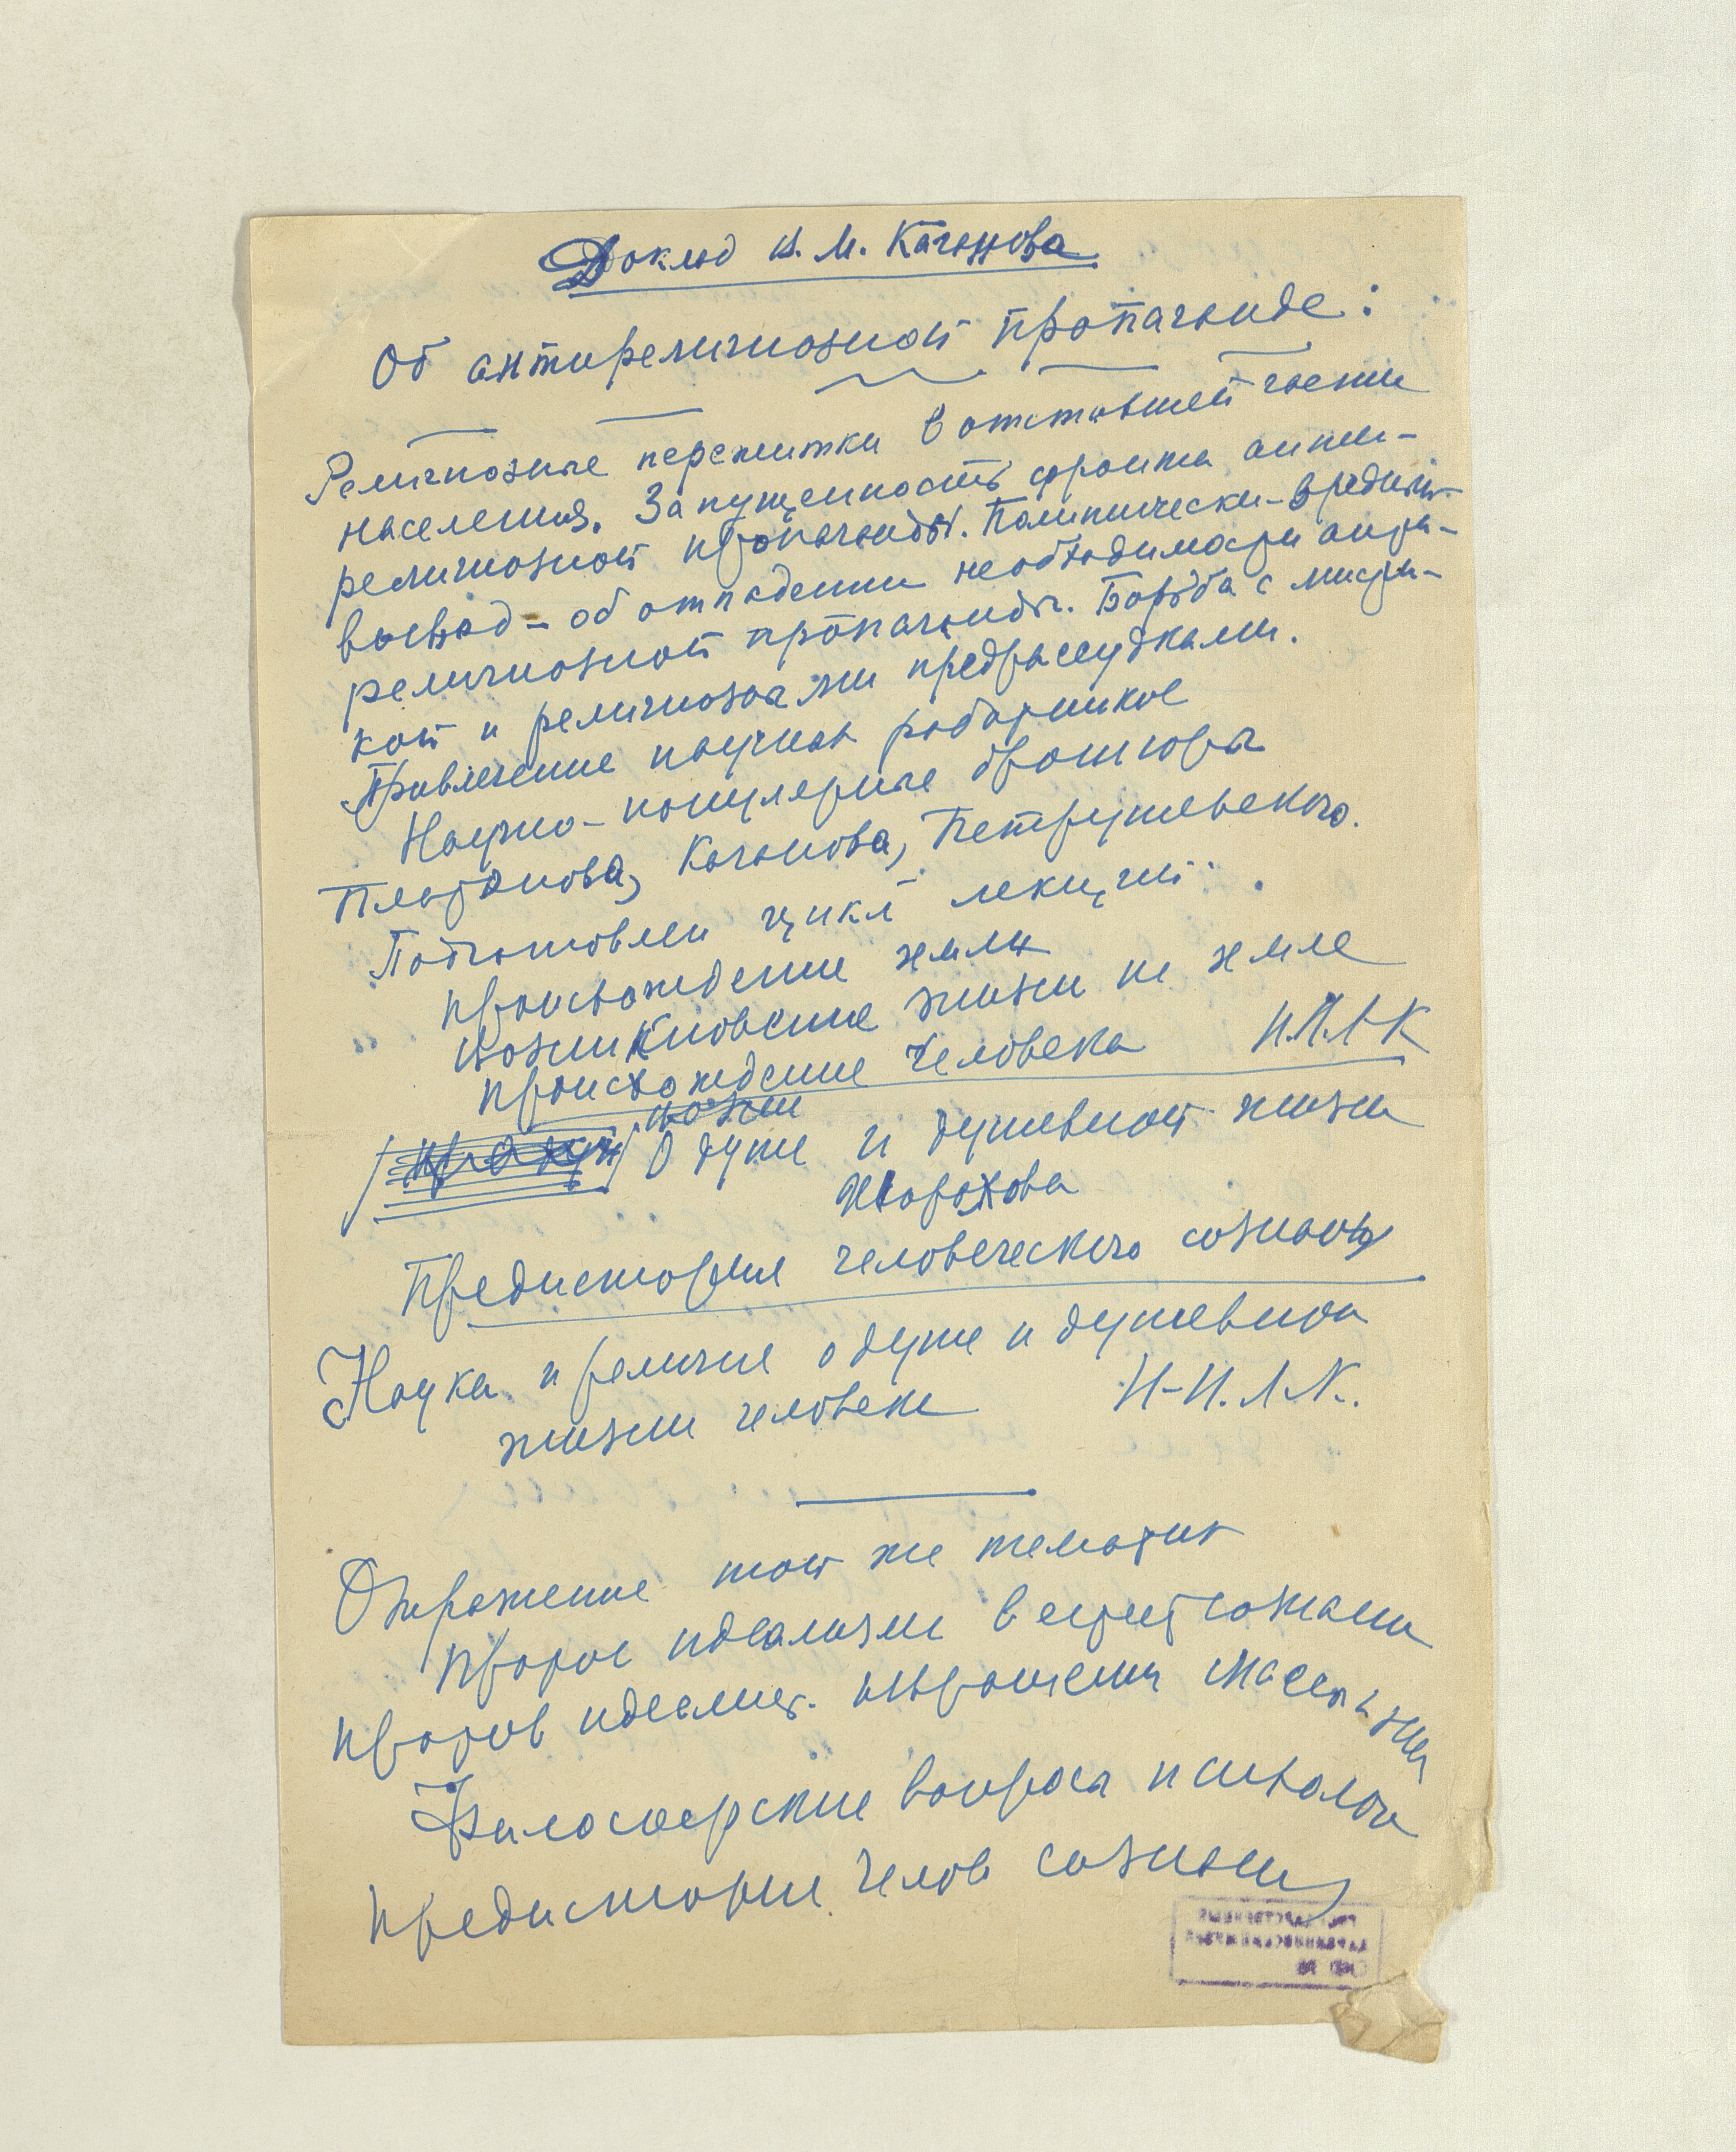 Доклад В. М. Каганова
Об антирелигиозной пропаганде:
Религиозные пережитки в отставшей части
населения. Запущенность фронта анти-
религиозной пропаганды. Политически-вредный
вывод - об отпадении необходимости анти-
религиозной пропаганды. Борьба с мисти-
кой и религиозными предрассудками.
Привлечение научных работников
Научно-популярные брошюры
Платонова, Каганова, Петрушевского.
Подготовлен цикл лекций:
Происхождение земли
Возникновение жизни на земле
Происхождение человека
О душе и душевной жизни
Предистория человеческого сознания
Наука и религия о душе и душевной
жизни человека
Отражение той же тематики
Против идеализма в естествознании
Против идеалист. извращения
Философские вопросы психологии
Предистория челов сознания